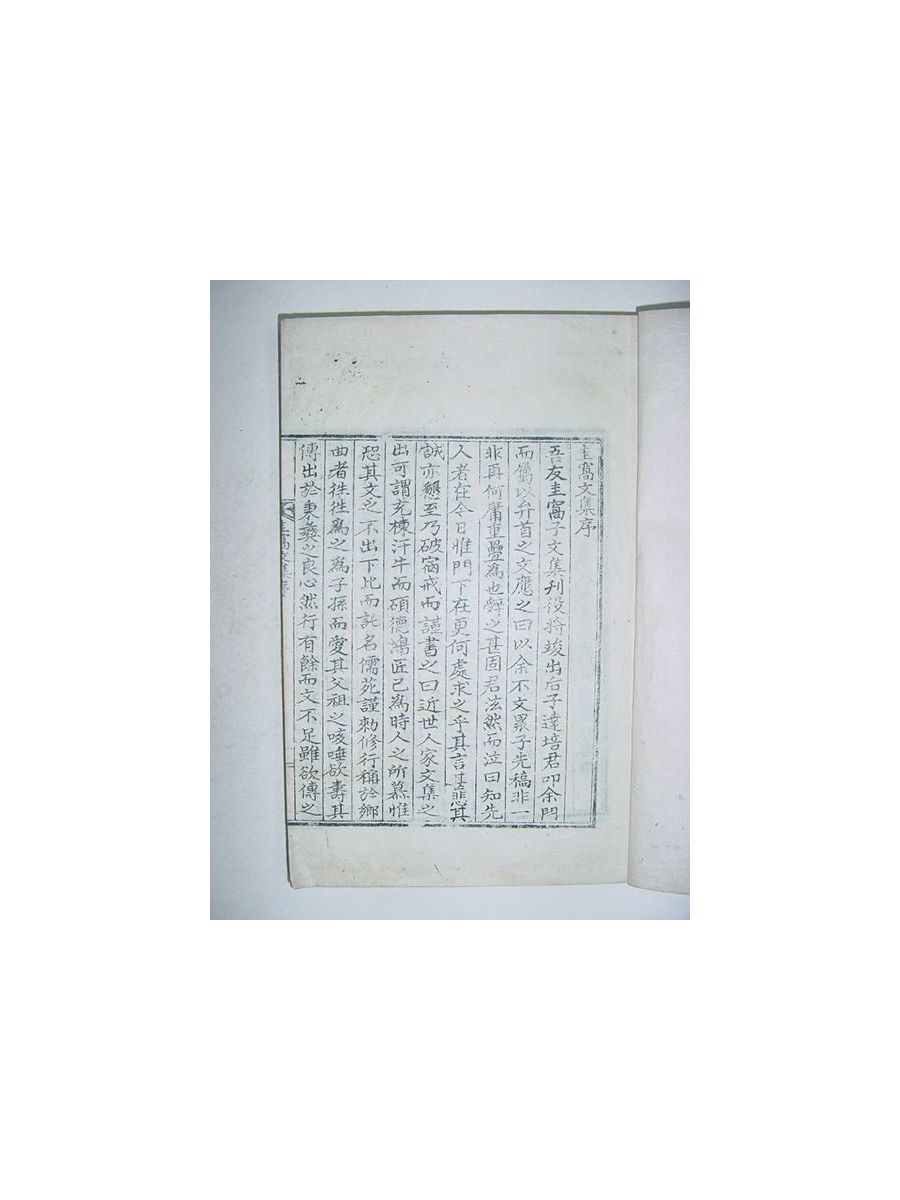 圭窩文集序
吾友圭窩子文集刊役將竣出后子達培君叩余門
而儁以弁首之文應之曰以余不文累子先稿非一
非再何庸重疊爲也辭之甚固君泫然而泣曰知先
人者在今日惟門下在更何處求之乎其言甚悲其
誠亦懇至乃破寤戒而謹書之曰近世人家文集之
出可謂充棟汗牛而碩德鴻匠已爲時人之所慕惟
恐其文之不出下比而託名儒苑謹勅修行稱於鄉
曲者徃徃爲之爲子孫而愛其父祖之咳唾欲壽其
傳出於秉彝之良心然行有餘而文不足雖欲傳之
圭窩文集序
一